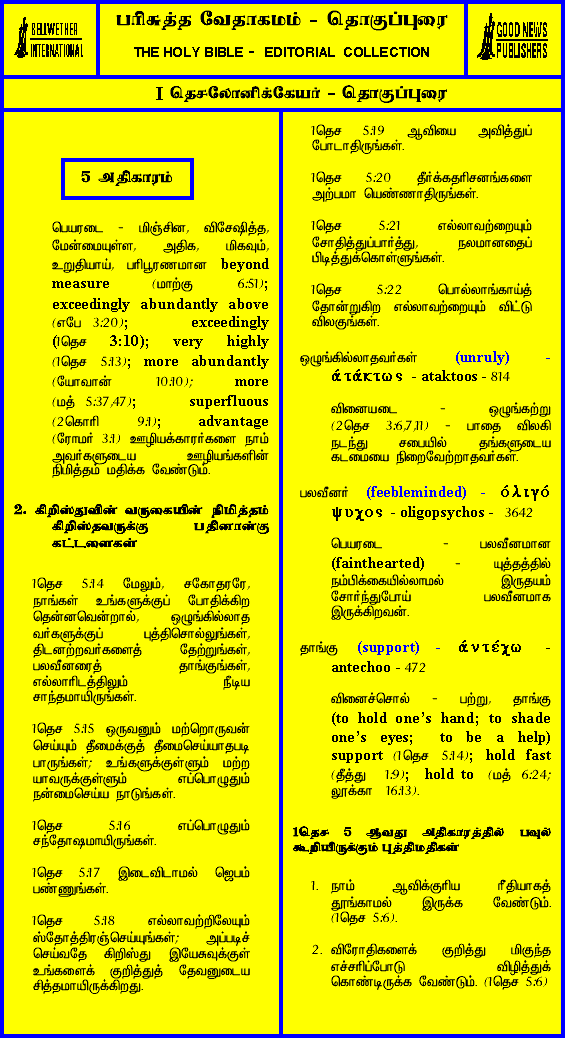 BELLWETHER
INTERNATIONAL
பரிசுத்த வேதாகமம் - தொகுப்புரை
THE HOLY BIBLE - EDITORIAL COLLECTION
GOOD NEWS
PUBLISHERS
I தெசலோனிக்கேயர் - தொகுப்புரை
5 அதிகாரம்
பெயரடை - மிஞ்சின, விசேஷித்த,
மேன்மையுள்ள, அதிக, மிகவும்,
உறுதியாய், பரிபூரணமான beyond
measure (மாற்கு 6:51);
exceedingly abundantly above
(எபே 3:20); exceedingly
(1தெச 3:10); very highly
(1தெச 5:13); more abundantly
(யோவான் 10:10); more
(மத் 5:37,47); superfluous
(2கொரி 9:1); advantage
(ரோமர் 3:1) ஊழியக்காரர்களை நாம்
அவர்களுடைய ஊழியங்களின்
நிமித்தம் மதிக்க வேண்டும்.
2. கிறிஸ்துவின் வருகையின் நிமித்தம்
கிறிஸ்தவருக்கு பதினான்கு
கட்டளைகள்
1தெச 5:14 மேலும், சகோதரரே,
நாங்கள் உங்களுக்குப் போதிக்கிற
தென்னவென்றால், ஒழுங்கில்லாத
வர்களுக்குப் புத்திசொல்லுங்கள்,
திடனற்றவர்களைத் தேற்றுங்கள்,
பலவீனரைத் தாங்குங்கள்,
எல்லாரிடத்திலும் நீடிய
சாந்தமாயிருங்கள்.
1தெச 5:15 ஒருவனும் மற்றொருவன்
செய்யும் தீமைக்குத் தீமைசெய்யாதபடி
பாருங்கள்; உங்களுக்குள்ளும் மற்ற
யாவருக்குள்ளும் எப்பொழுதும்
நன்மைசெய்ய நாடுங்கள்.
1தெச 5:16 எப்பொழுதும்
சந்தோஷமாயிருங்கள்.
1தெச 5:17 இடைவிடாமல் ஜெபம்
பண்ணுங்கள்.
1தெச 5:18 எல்லாவற்றிலேயும்
ஸ்தோத்திரஞ்செய்யுங்கள்; அப்படிச்
செய்வதே கிறிஸ்து இயேசுவுக்குள்
உங்களைக் குறித்துத் தேவனுடைய
சித்தமாயிருக்கிறது.
1தெச 5:19 ஆவியை அவித்துப்
போடாதிருங்கள்.
1தெச 5:20 தீர்க்கதரிசனங்களை
அற்பமா யெண்ணாதிருங்கள்.
1தெச 5:21 எல்லாவற்றையும்
சோதித்துப்பார்த்து, நலமானதைப்
பிடித்துக்கொள்ளுங்கள்.
1தெச 5:22 பொல்லாங்காய்த்
தோன்றுகிற எல்லாவற்றையும் விட்டு
விலகுங்கள்.
ஒழுங்கில்லாதவர்கள் (unruly) -
άτάκτως - ataktoos - 814
வினையடை - ஒழுங்கற்று
(2தெச 3:6,7,11) - பாதை விலகி
நடந்து சபையில் தங்களுடைய
கடமையை நிறைவேற்றாதவர்கள்.
பலவீனர் (feebleminded) - όλιγό
ψυχος - oligopsychos - 3642
பெயரடை - பலவீனமான
(fainthearted) - யுத்தத்தில்
நம்பிக்கையில்லாமல் இருதயம்
சோர்ந்துபோய் பலவீனமாக
இருக்கிறவன்.
தாங்கு (support) - άντέχω -
antechoo - 472
வினைச்சொல் - பற்று, தாங்கு
(to hold one's hand; to shade
one's eyes; to be a help)
support (1தெச 5:14); hold fast
(தீத்து 1:9); hold to (மத் 6:24;
லூக்கா 16:13).
1தெச 5 ஆவது அதிகாரத்தில் பவுல்
கூறியிருக்கும் புத்திமதிகள்
1. நாம் ஆவிக்குரிய ரீதியாகத்
தூங்காமல் இருக்க வேண்டும்.
(1தெச 5:6).
2. விரோதிகளைக் குறித்து மிகுந்த
எச்சரிப்போடு விழித்துக்
கொண்டிருக்க வேண்டும். (1தெச 5:6)